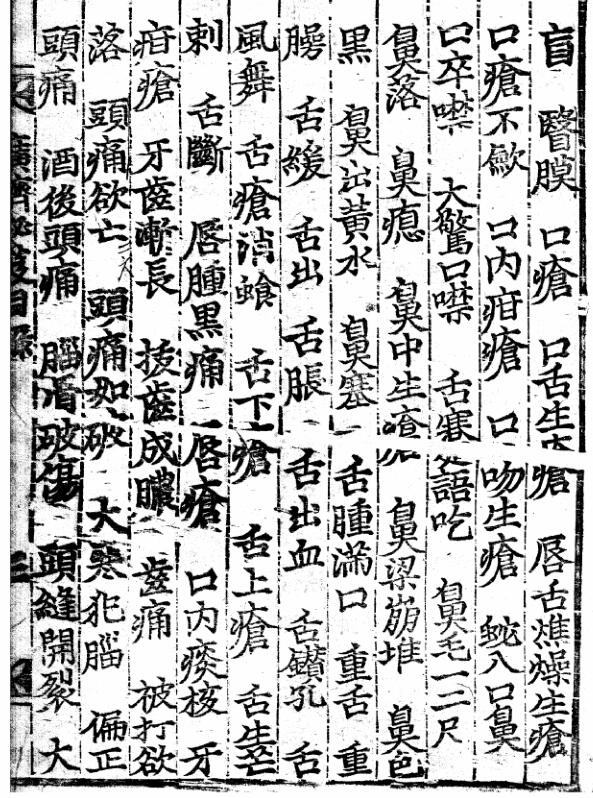 盲 瞖膜 口瘡 口舌生瘡 唇舌燋燥生瘡
口瘡不歛 口內疳瘡 口吻生瘡 蛇入口鼻
口卒噤 大驚口噤 舌寒語吃 鼻毛一二尺
鼻落 鼻瘜 鼻中生瘡 鼻梁崩堆 鼻色
黑 鼻出黃水 鼻塞 舌腫滿口 重舌 重
腭 舌緩 舌出 舌脹 舌出血 舌鑽孔 舌
風舞 舌瘡消蝕 舌下瘡 舌上瘡 舌生芒
刺 舌斷 唇腫黑痛 唇瘡 口內痰核 牙
疳瘡 牙齒漸長 拔齒成膿 齒痛 被打欲
落 頭痛欲亡 頭痛如破 大寒犯腦 偏正
頭痛 酒後頭痛 腦眉破傷 頭縫開裂 大
廣濟秘笈目錄 三